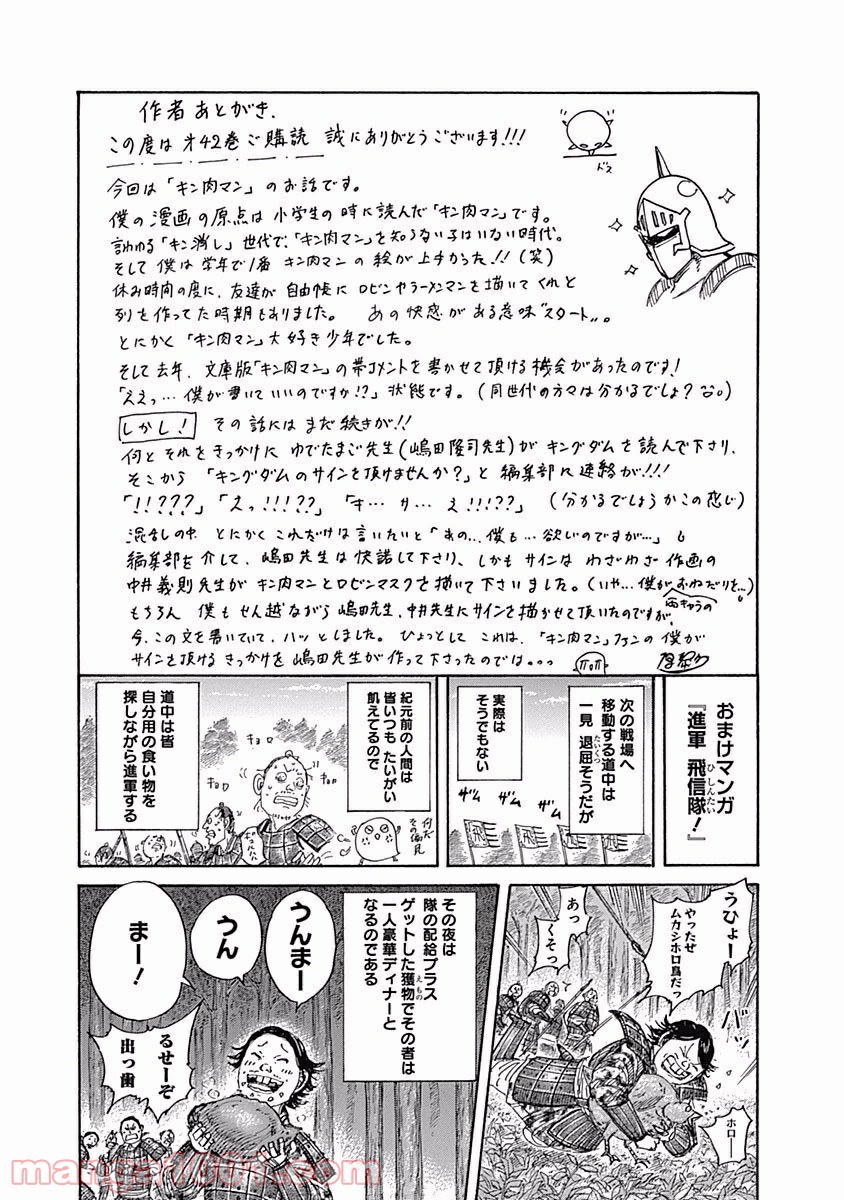 作者あとがき.
この度は 才42巻ご購読 誠にありがとうございます!!!
ドス
今回は「キン肉マン」のお話です。
僕の漫画の原点は小学生の時に読んだ「キン肉マン」です。
いわゆる「キン消し」世代で、「キン肉マン」を知らない子はいない時代。
そして僕は学年で1番 キン肉マンの絵が上手かった!!(笑)
休み時間の度に、友達が自由帳にロビンやラーメンマンを描いてくれと
列を作ってた時期もありました。 あの快感がある意味“スタート”。
とにかく「キン肉マン」大好き少年でした。
そして去年、文庫版「キン肉マン」の帯コメントを書かせて頂ける機会があったのです!
「ええっ…僕が書いていいのですか!?」状態です。(同世代の方々は分かるでしょ?)
しかし! その話にはまだ続きが!!
何とそれをきっかけにゆでたまご先生(嶋田隆司先生)がキングダムを読んで下さり、
そこから「キングダムのサインを頂けませんか?」と編集部に連絡が!!!
「!!???」「えっ!!!??」「キ…サ…え!!!??」 (分かるでしょうかこの感じ)
混乱の中 とにかくこれだけは言いたいと「あの…僕も…欲しいのですが…」
編集部を介して、嶋田先生は快諾して下さり、しかもサインはわざわざ作画の
中井義則先生がキン肉マンとロビンマスクを描いて下さいました。(いや…僕がおねだりを…)
両キャラの
もちろん 僕もせん越ながら嶋田先生、中井先生にサインを描かせて頂いたのですが、
今、この文を書いていて、ハッとしました。ひょっとしてこれは、「キン肉マン」ファンの僕が
サインを頂けるきっかけを嶋田先生が作って下さったのでは。。。
原泰久
おまけマンガ
『進軍 飛信隊!』
ひしんたい
次の戦場へ
移動する道中は
一見 退屈そうだが
たいくつ
実際は
そうでもない
ザム
ザム
ザム
飛
飛
紀元前の人間は
皆いつも たいがい
飢えてるので
キョロ
キョロ
何だ
その偏見
道中は皆
自分用の食い物を
探しながら進軍する
うひょー
やったぜ
ムカシホロ鳥だっ
あっ
くそっ
ホロ――
その夜は
隊の配給プラス
ゲットした獲物でその者は
えもの
一人豪華ディナーと
なるのである
うんまー
うん
まー!
るせーぞ
出っ歯
manga1001.com